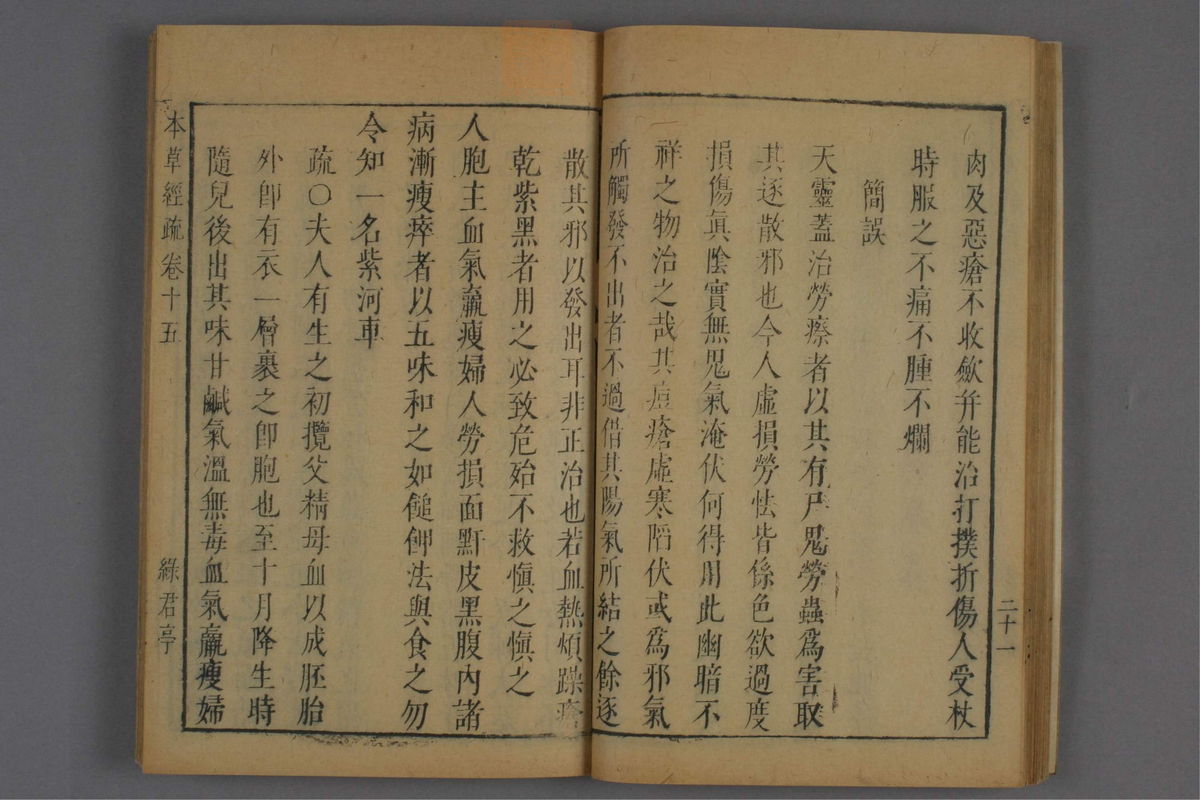 二十一
肉及惡瘡不收斂并能治打撲折傷人受杖
時服之不痛不腫不爛
簡誤
天靈蓋治勞瘵者以其有尸鬼勞蟲爲害取
其逐散邪也今人虛損勞怯皆係色欲過度
損傷眞陰實無鬼氣淹伏何得用此幽暗不
祥之物治之哉其痘瘡虛寒陷伏或爲邪氣
所觸發不出者不過借其陽氣所結之餘逐
散其邪以發出耳非正治也若血熱煩躁瘡
乾紫黑者用之必致危殆不救愼之愼之
人胞主血氣羸瘦婦人勞損面䵟皮黑腹內諸
病漸瘦瘁者以五味和之如䭔䭅法與食之勿
令知一名紫河車
疏○夫人有生之初攬父精母血以成胚胎
外卽有衣一層裹之卽胞也至十月降生時
隨兒後出其味甘鹹氣溫無毒血氣羸瘦婦
本草經疏卷十五
綠君亭